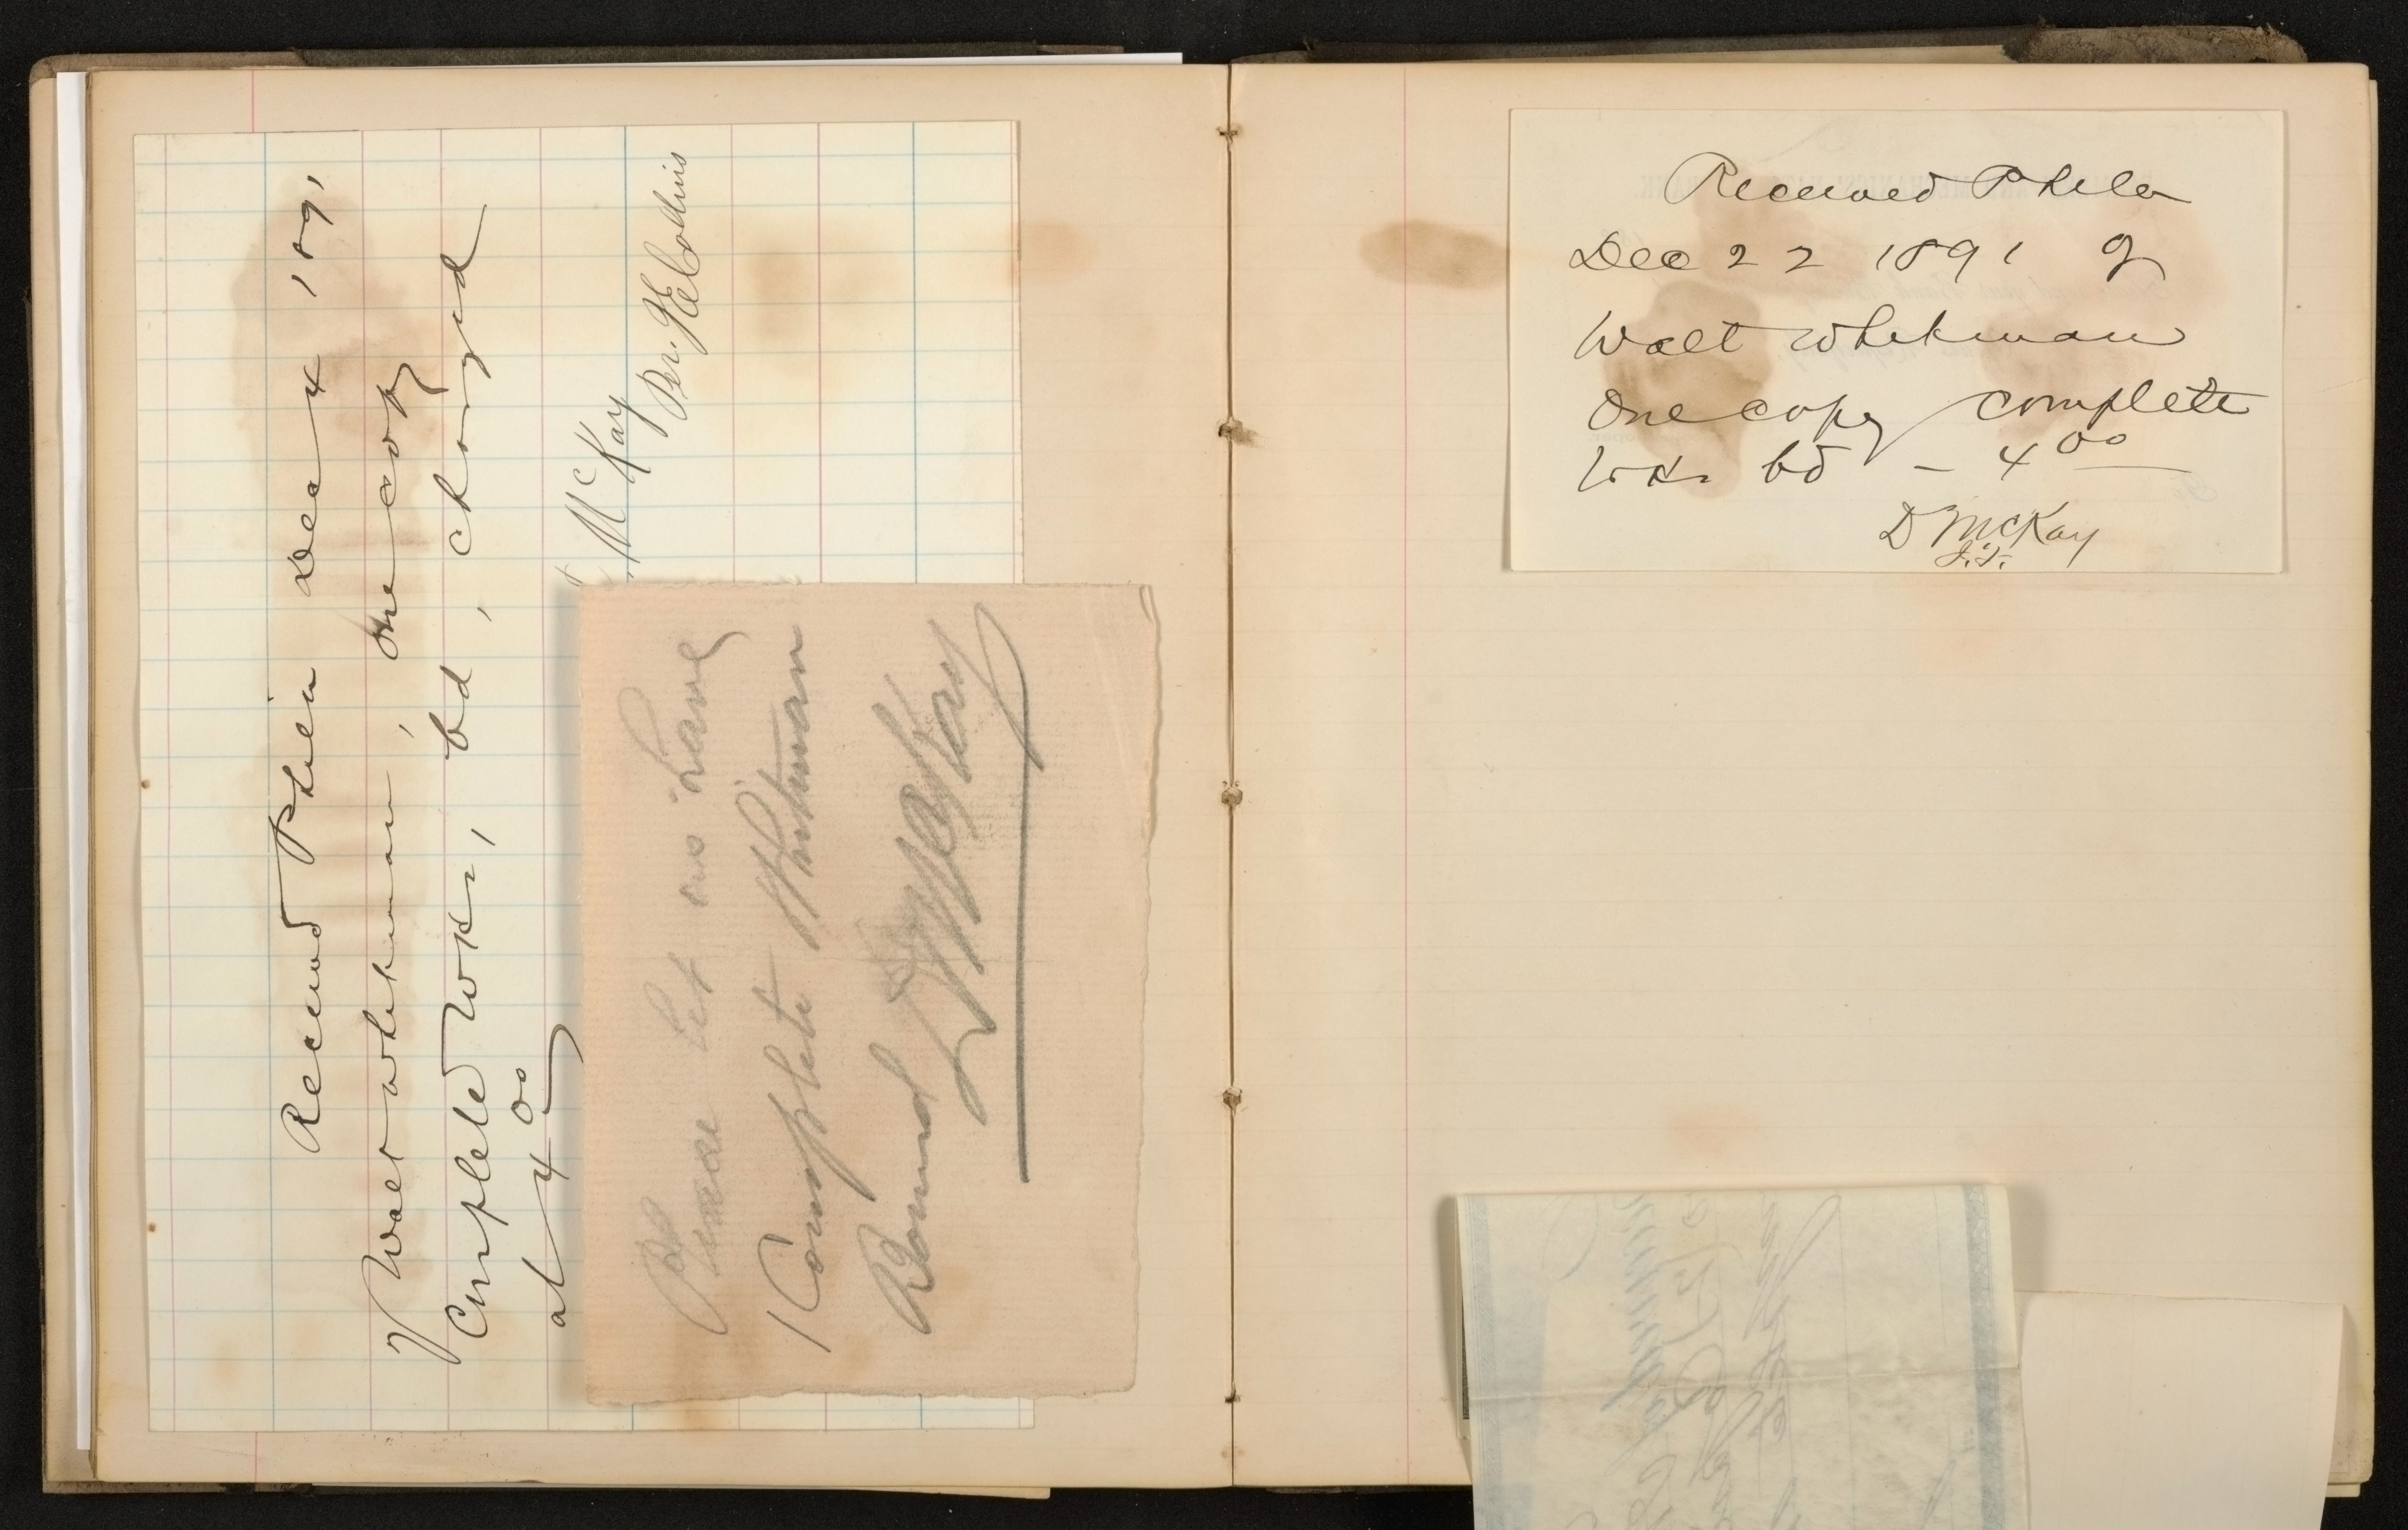 Received Phila Dec 4 1891
of Walt Whitman, one copy
Complete Wks, bd, charged
at 4 00
McKay
Per. H E Collins
Please let me have
1 Complete Whitman
Bound
D McKay
Received Phila
Dec 22 1891 of
Walt Whitman
One copy complete
Wks bd — 4 00
D McKay